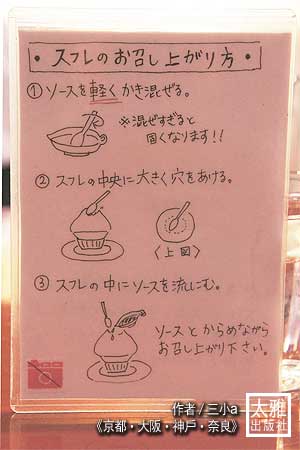 ・スフレのお召し上がり方・
① ソースを軽くかき混ぜる。
※混ぜすぎると
固くなります!!
② スフレの中央に大きく穴をあける。
〈上図〉
③ スフレの中にソースを流しこむ。
ソースとからめながら
お召し上がり下さい。
作者/三小a
《京都・大阪・神戶・奈良》
太雅
出版社